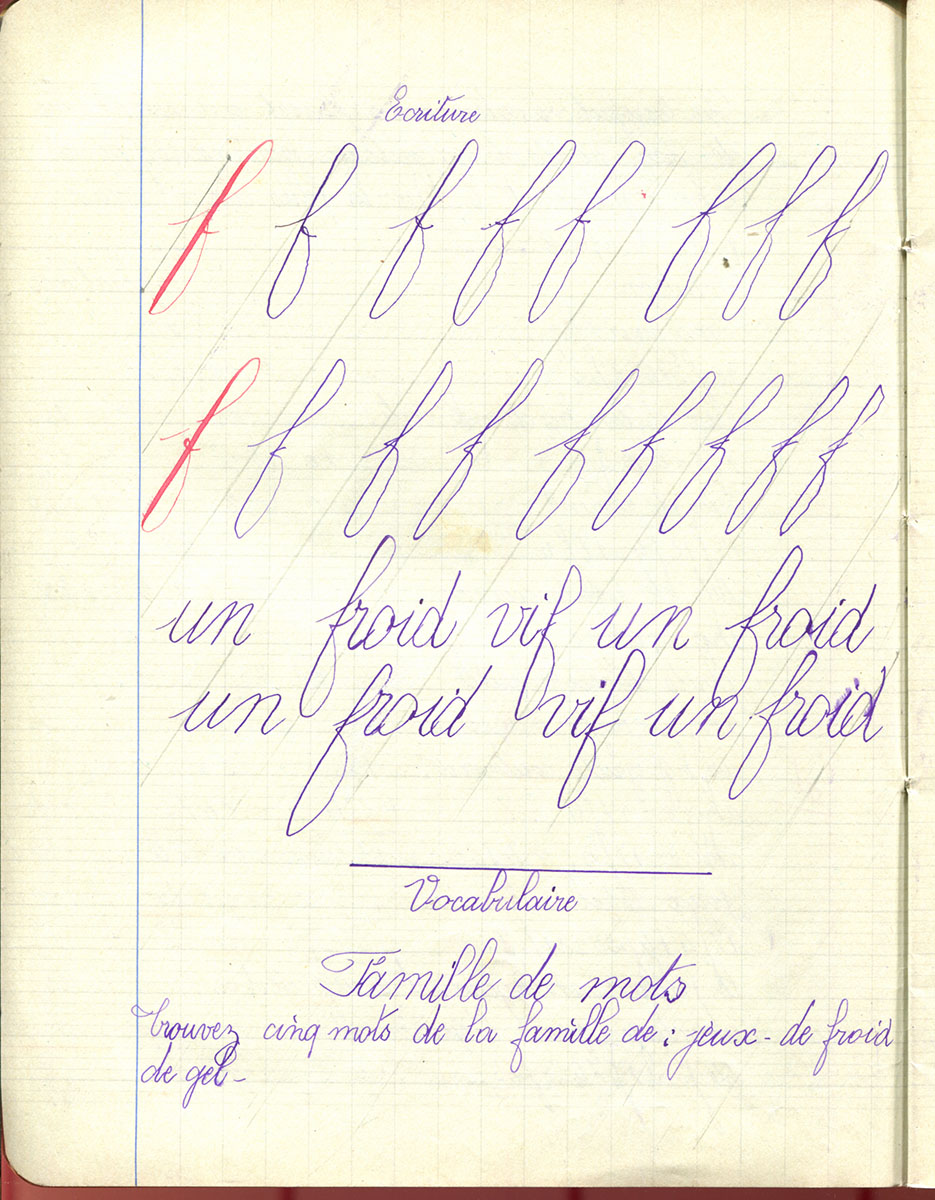 Ecriture
f f f f f f f f
f f f f f f f f f
un froid vif un froid
un froid vif un froid
Vocabulaire
Famille de mots
Trouvez cinq mots de la famille de : jeux - de froid
de gel -